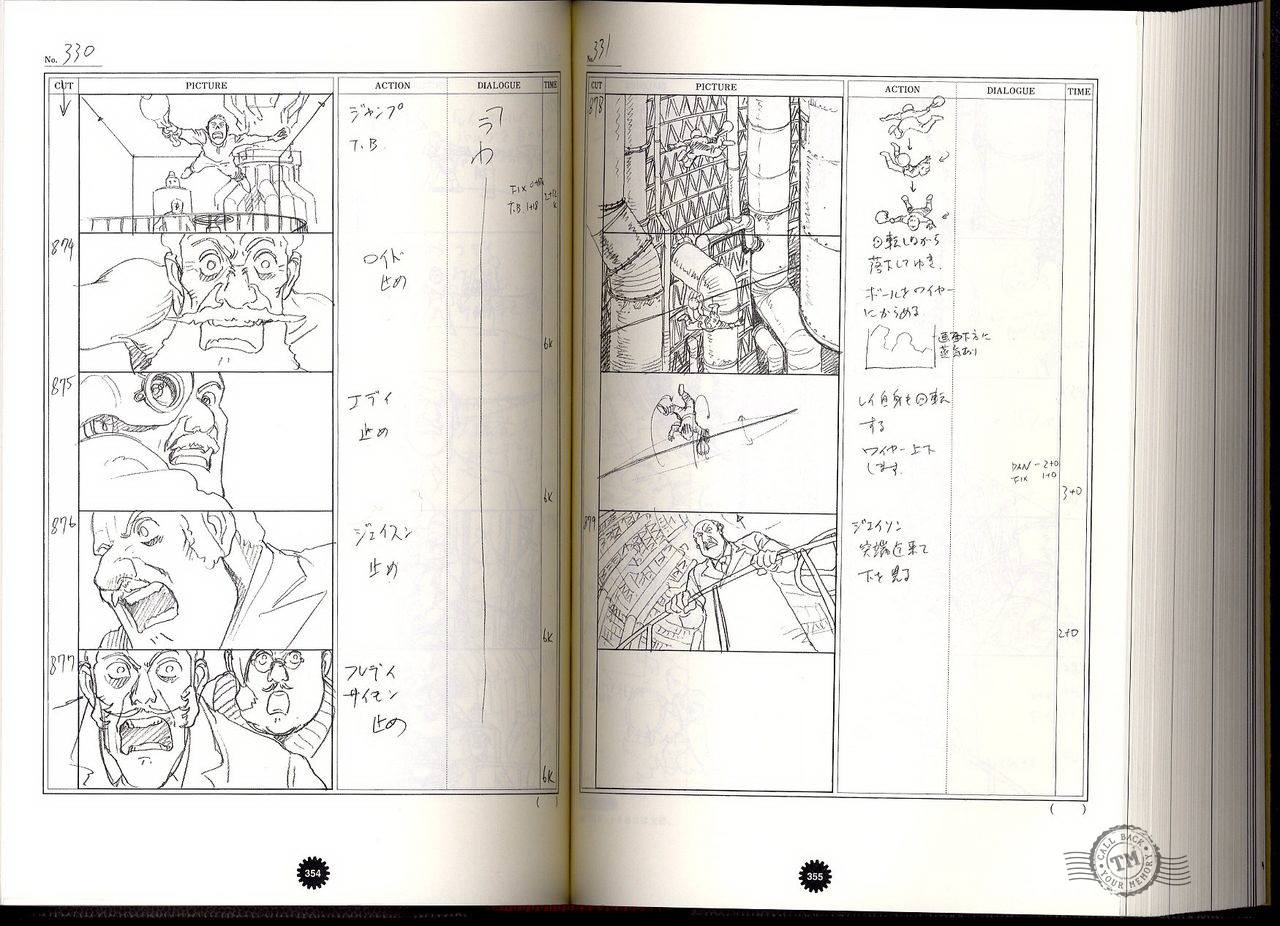 No. 330
CUT PICTURE ACTION DIALOGUE TIME
ジャンプ
T.B.
うわ
FIX
T.B. 1+18
874
ロイド
止め
6K
875
エディ
止め
6K
876
ジェイスン
止め
6K
877
フレディ
サイモン
止め
6K
( )
354
No. 331
CUT PICTURE ACTION DIALOGUE TIME
878
回転しながら
落下してゆき、
ボールをワイヤー
にからめる
画面下方に
蒸気あり
レイ自身も回転
する
ワイヤー上下
します。
PAN - 2+0
FIX 1+0
3+0
879
ジェイソン
突端迄来て
下を見る
2+0
( )
355
CALL BACK
TM
YOUR MEMORY